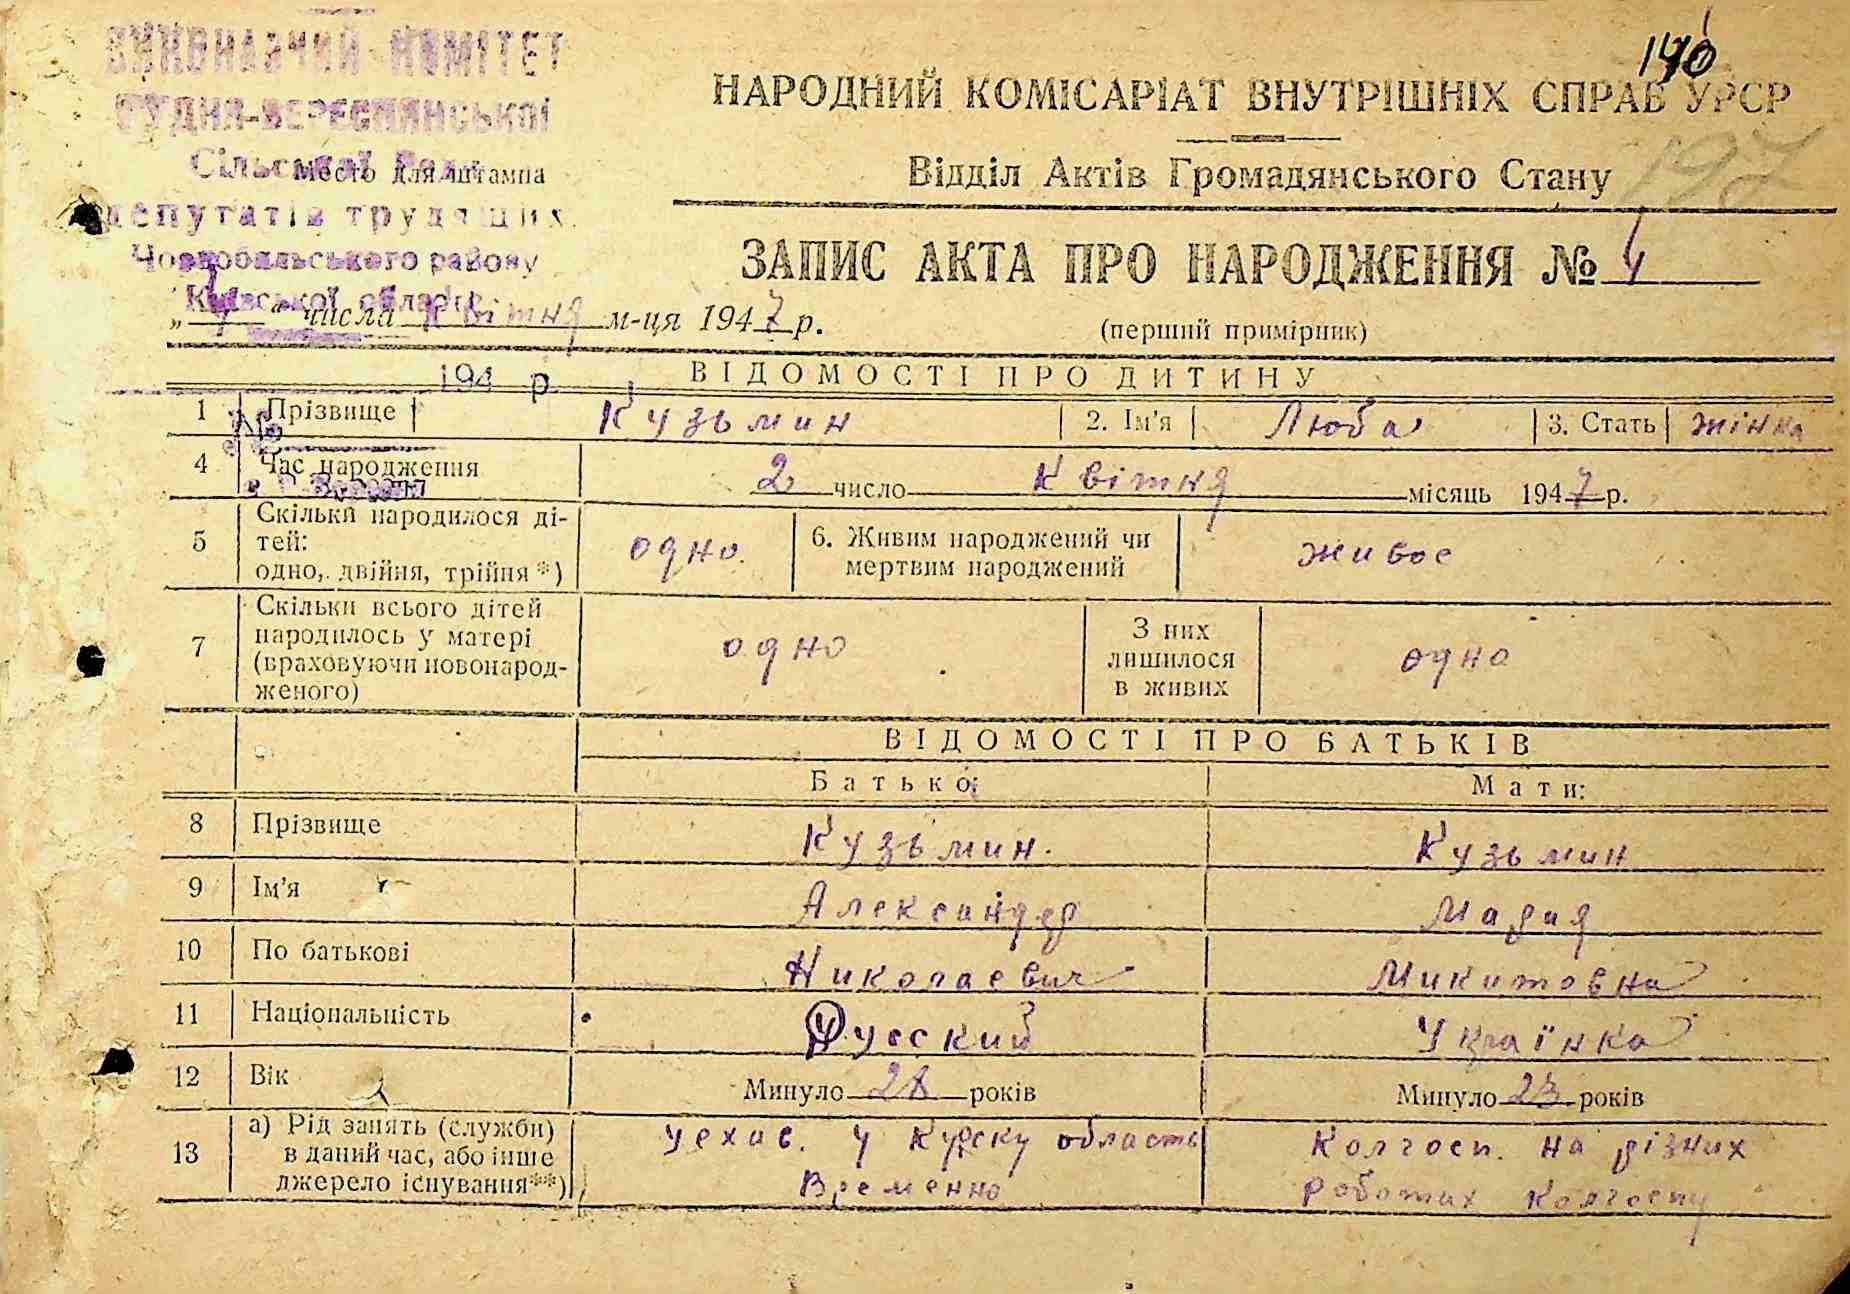 ВИКОНАВЧИЙ КОМІТЕТ
РУДНЯ-ВЕРЕСНЯНСЬКОЇ
Сільської Ради
депутатів трудящих
Чорнобильського району
Київської області
194 р.
№
Место для штампа
140
197
НАРОДНИЙ КОМІСАРІАТ ВНУТРІШНІХ СПРАВ УРСР
Відділ Актів Громадянського Стану
ЗАПИС АКТА ПРО НАРОДЖЕННЯ № 4
„ 4 “ числа квітня м-ця 1947 р.
(перший примірник)
ВІДОМОСТІ ПРО ДИТИНУ
1 Прізвище Кузьмин 2. Ім'я Люба 3. Стать жінка
4 Час народження 2 число Квітня місяць 1947 р.
5 Скільки народилося ді-
тей:
одно, двійня, трійня *) одно. 6. Живим народжений чи
мертвим народжений живое
7 Скільки всього дітей
народилось у матері
(враховуючи новонарод-
женого) одно З них
лишилося
в живих одно
ВІДОМОСТІ ПРО БАТЬКІВ
Батько: Мати:
8 Прізвище Кузьмин. Кузьмин
9 Ім'я Александр Мария
10 По батькові Николаевич Микитовна
11 Національність Русский Українка
12 Вік Минуло 28 років Минуло 23 років
13 а) Рід занять (служби)
в даний час, або інше
джерело існування **) уехав. у Курску область
Временно
Колгосп. на різних
роботих колгоспу